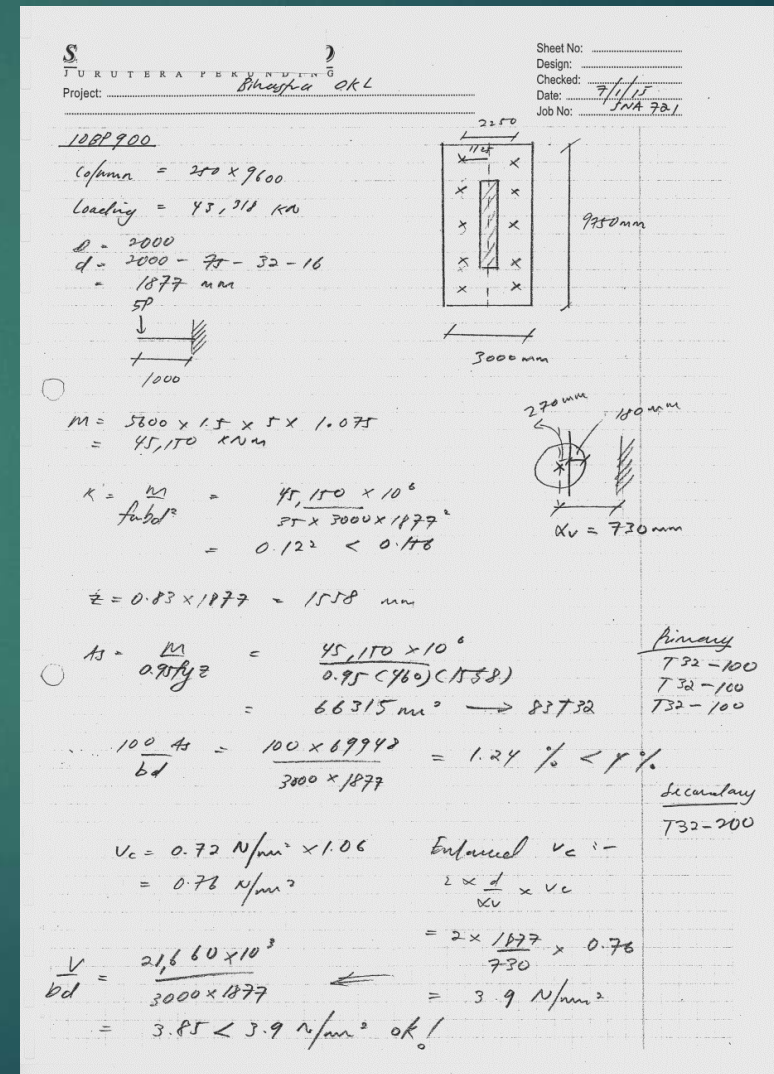 JURUTERA PERUNDING
Project: Binastra OKL
Sheet No:
Design:
Checked:
Date: 7/1/15
Job No: SNA 721
10BP900
Column = 250 x 9600
Loading = 43,318 KN
D = 2000
d = 2000 - 75 - 32 - 16
= 1877 mm
5P
1000
2250
1125
9750mm
3000mm
M = 5600 x 1.5 x 5 x 1.075
= 45,150 KNm
270mm
180mm
αv = 730mm
K = M/fcubd² = 45,150 x 10⁶/35 x 3000 x 1877²
= 0.122 < 0.156
z = 0.83 x 1877 = 1558 mm
As = M/0.95fyz = 45,150 x 10⁶/0.95(460)(1558)
= 66315 mm² → 83T32
Primary
T32-100
T32-100
T32-100
100 As/bd = 100 x 69948/3000 x 1877 = 1.24 % < 4 %
Secondary
T32-200
Vc = 0.72 N/mm² x 1.06
= 0.76 N/mm²
Enhanced Vc :-
2 x d/αv x Vc
= 2 x 1877/730 x 0.76
= 3.9 N/mm²
V/bd = 21,660 x 10³/3000 x 1877
= 3.85 < 3.9 N/mm² ok!